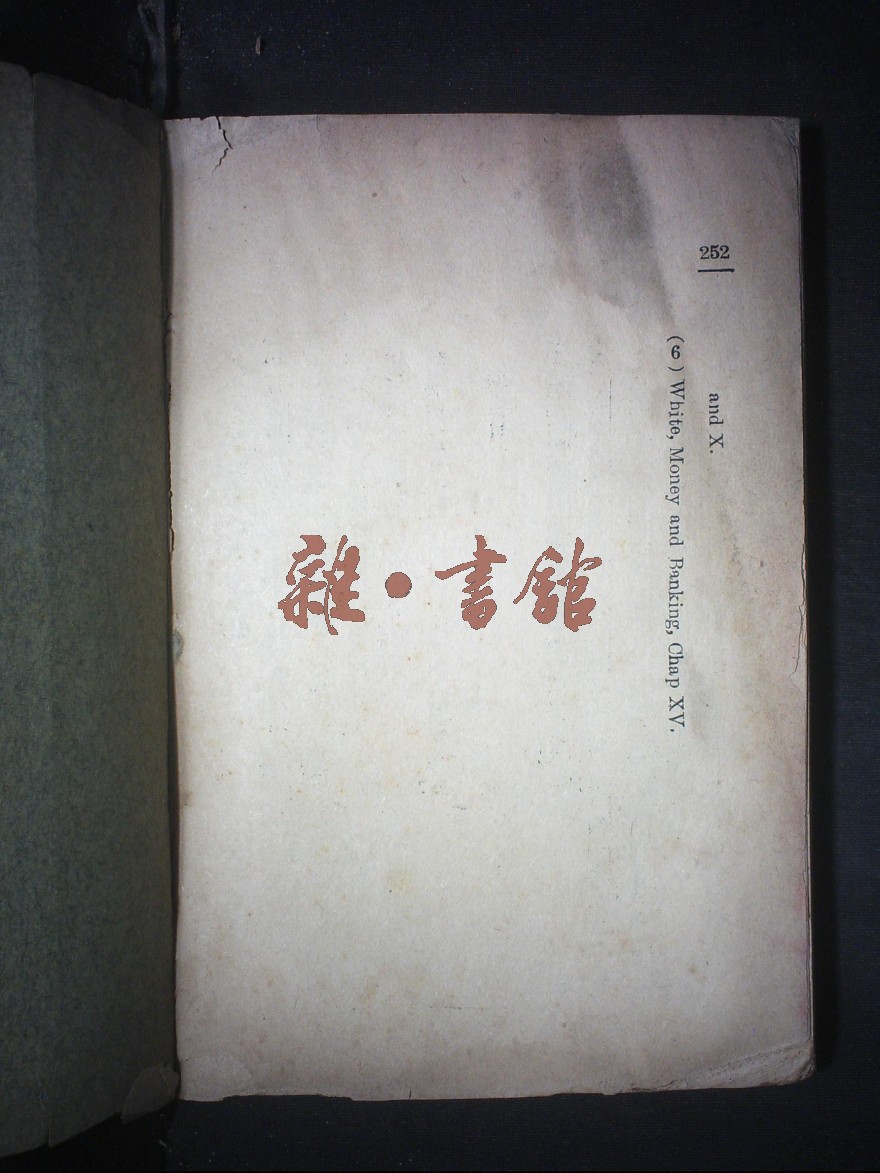 252
and X.
(6) White, Money and Banking, Chap XV.
雜·書館